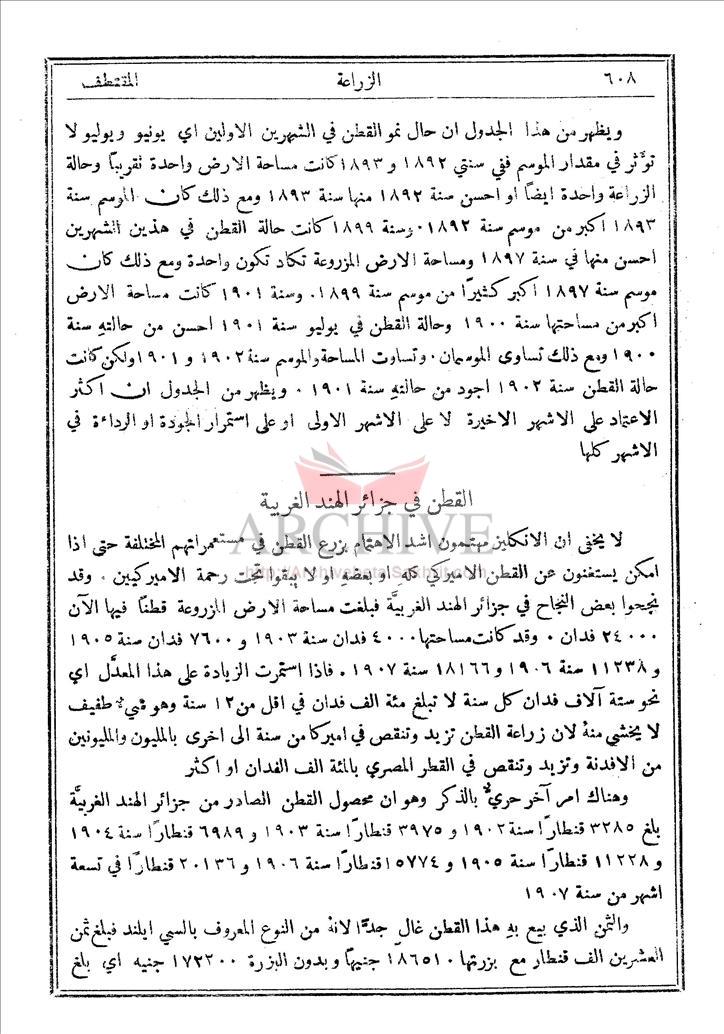 ٦٠٨ الزراعة المقتطف
ويظهر من هذا الجدول ان حال نمو القطن في الشهرين الاولين اي يونيو ويوليو لا
تؤثر في مقدار الموسم ففي سنتي ١٨٩٢ و ١٨٩٣ كانت مساحة الارض واحدة نقريبًا وحالة
الزراعة واحدة ايضًا او احسن سنة ١٨٩٢ منها سنة ١٨٩٣ ومع ذلك كان الموسم سنة
١٨٩٣ اكبر من موسم سنة ١٨٩٢ . وسنة ١٨٩٩ كانت حالة القطن في هذين الشهرين
احسن منها في سنة ١٨٩٧ ومساحة الارض المزروعة تكاد تكون واحدة ومع ذلك كان
موسم سنة ١٨٩٧ اكبر كثيرًا من موسم سنة ١٨٩٩ . وسنة ١٩٠١ كانت مساحة الارض
اكبر من مساحتها سنة ١٩٠٠ وحالة القطن في يوليو سنة ١٩٠١ احسن من حالته سنة
١٩٠٠ ومع ذلك تساوى الموسمان . وتساوت المساحة والموسم سنة ١٩٠٢ و ١٩٠١ ولكن كانت
حالة القطن سنة ١٩٠٢ اجود من حالته سنة ١٩٠١ . ويظهر من الجدول ان اكثر
الاعتماد على الاشهر الاخيرة لا على الاشهر الاولى او على استمرار الجودة او الرداءة في
الاشهر كلها
القطن في جزائر الهند الغربية
ARCHIVE
لا يخفى ان الانكليز مهتمون اشد الاهتمام بزرع القطن في مستعمراتهم المختلفة حتى اذا
امكن يستغنون عن القطن الاميركي كله او بعضه او لا يبقوا تحت رحمة الاميركيين . وقد
نجحوا بعض النجاح في جزائر الهند الغربيَّة فبلغت مساحة الارض المزروعة قطنًا فيها الآن
٢٤٠٠٠ فدان . وقد كانت مساحتها ٤٠٠٠ فدان سنة ١٩٠٣ و ٧٦٠٠ فدان سنة ١٩٠٥
و ١١٢٣٨ سنة ١٩٠٦ و ١٨١٦٦ سنة ١٩٠٧ . فاذا استمرت الزيادة على هذا المعدَّل اي
نحو ستة آلاف فدان كل سنة لا تبلغ مئة الف فدان في اقل من ١٢ سنة وهو شيء طفيف
لا يخشى منهُ لان زراعة القطن تزيد وتنقص في اميركا من سنة الى اخرى بالمليون والمليونين
من الافدنة وتزيد وتنقص في القطر المصري بالمئة الف الفدان او اكثر
وهناك امر آخر حريٌّ بالذكر وهو ان محصول القطن الصادر من جزائر الهند الغربيَّة
بلغ ٣٢٨٥ قنطارًا سنة ١٩٠٢ و ٣٩٧٥ قنطارًا سنة ١٩٠٣ و ٦٩٨٩ قنطارًا سنة ١٩٠٤
و ١١٢٢٨ قنطارًا سنة ١٩٠٥ و ١٥٧٧٤ قنطارًا سنة ١٩٠٦ و ٢٠١٣٦ قنطارًا في تسعة
اشهر من سنة ١٩٠٧
والثمن الذي بيع بهِ هذا القطن غالٍ جدًّا لانهُ من النوع المعروف بالسي ايلند فبلغ ثمن
العشرين الف قنطار مع بزرتها ١٨٦٥١٠ جنيهًا وبدون البزرة ١٧٢٢٠٠ جنيه اي بلغ